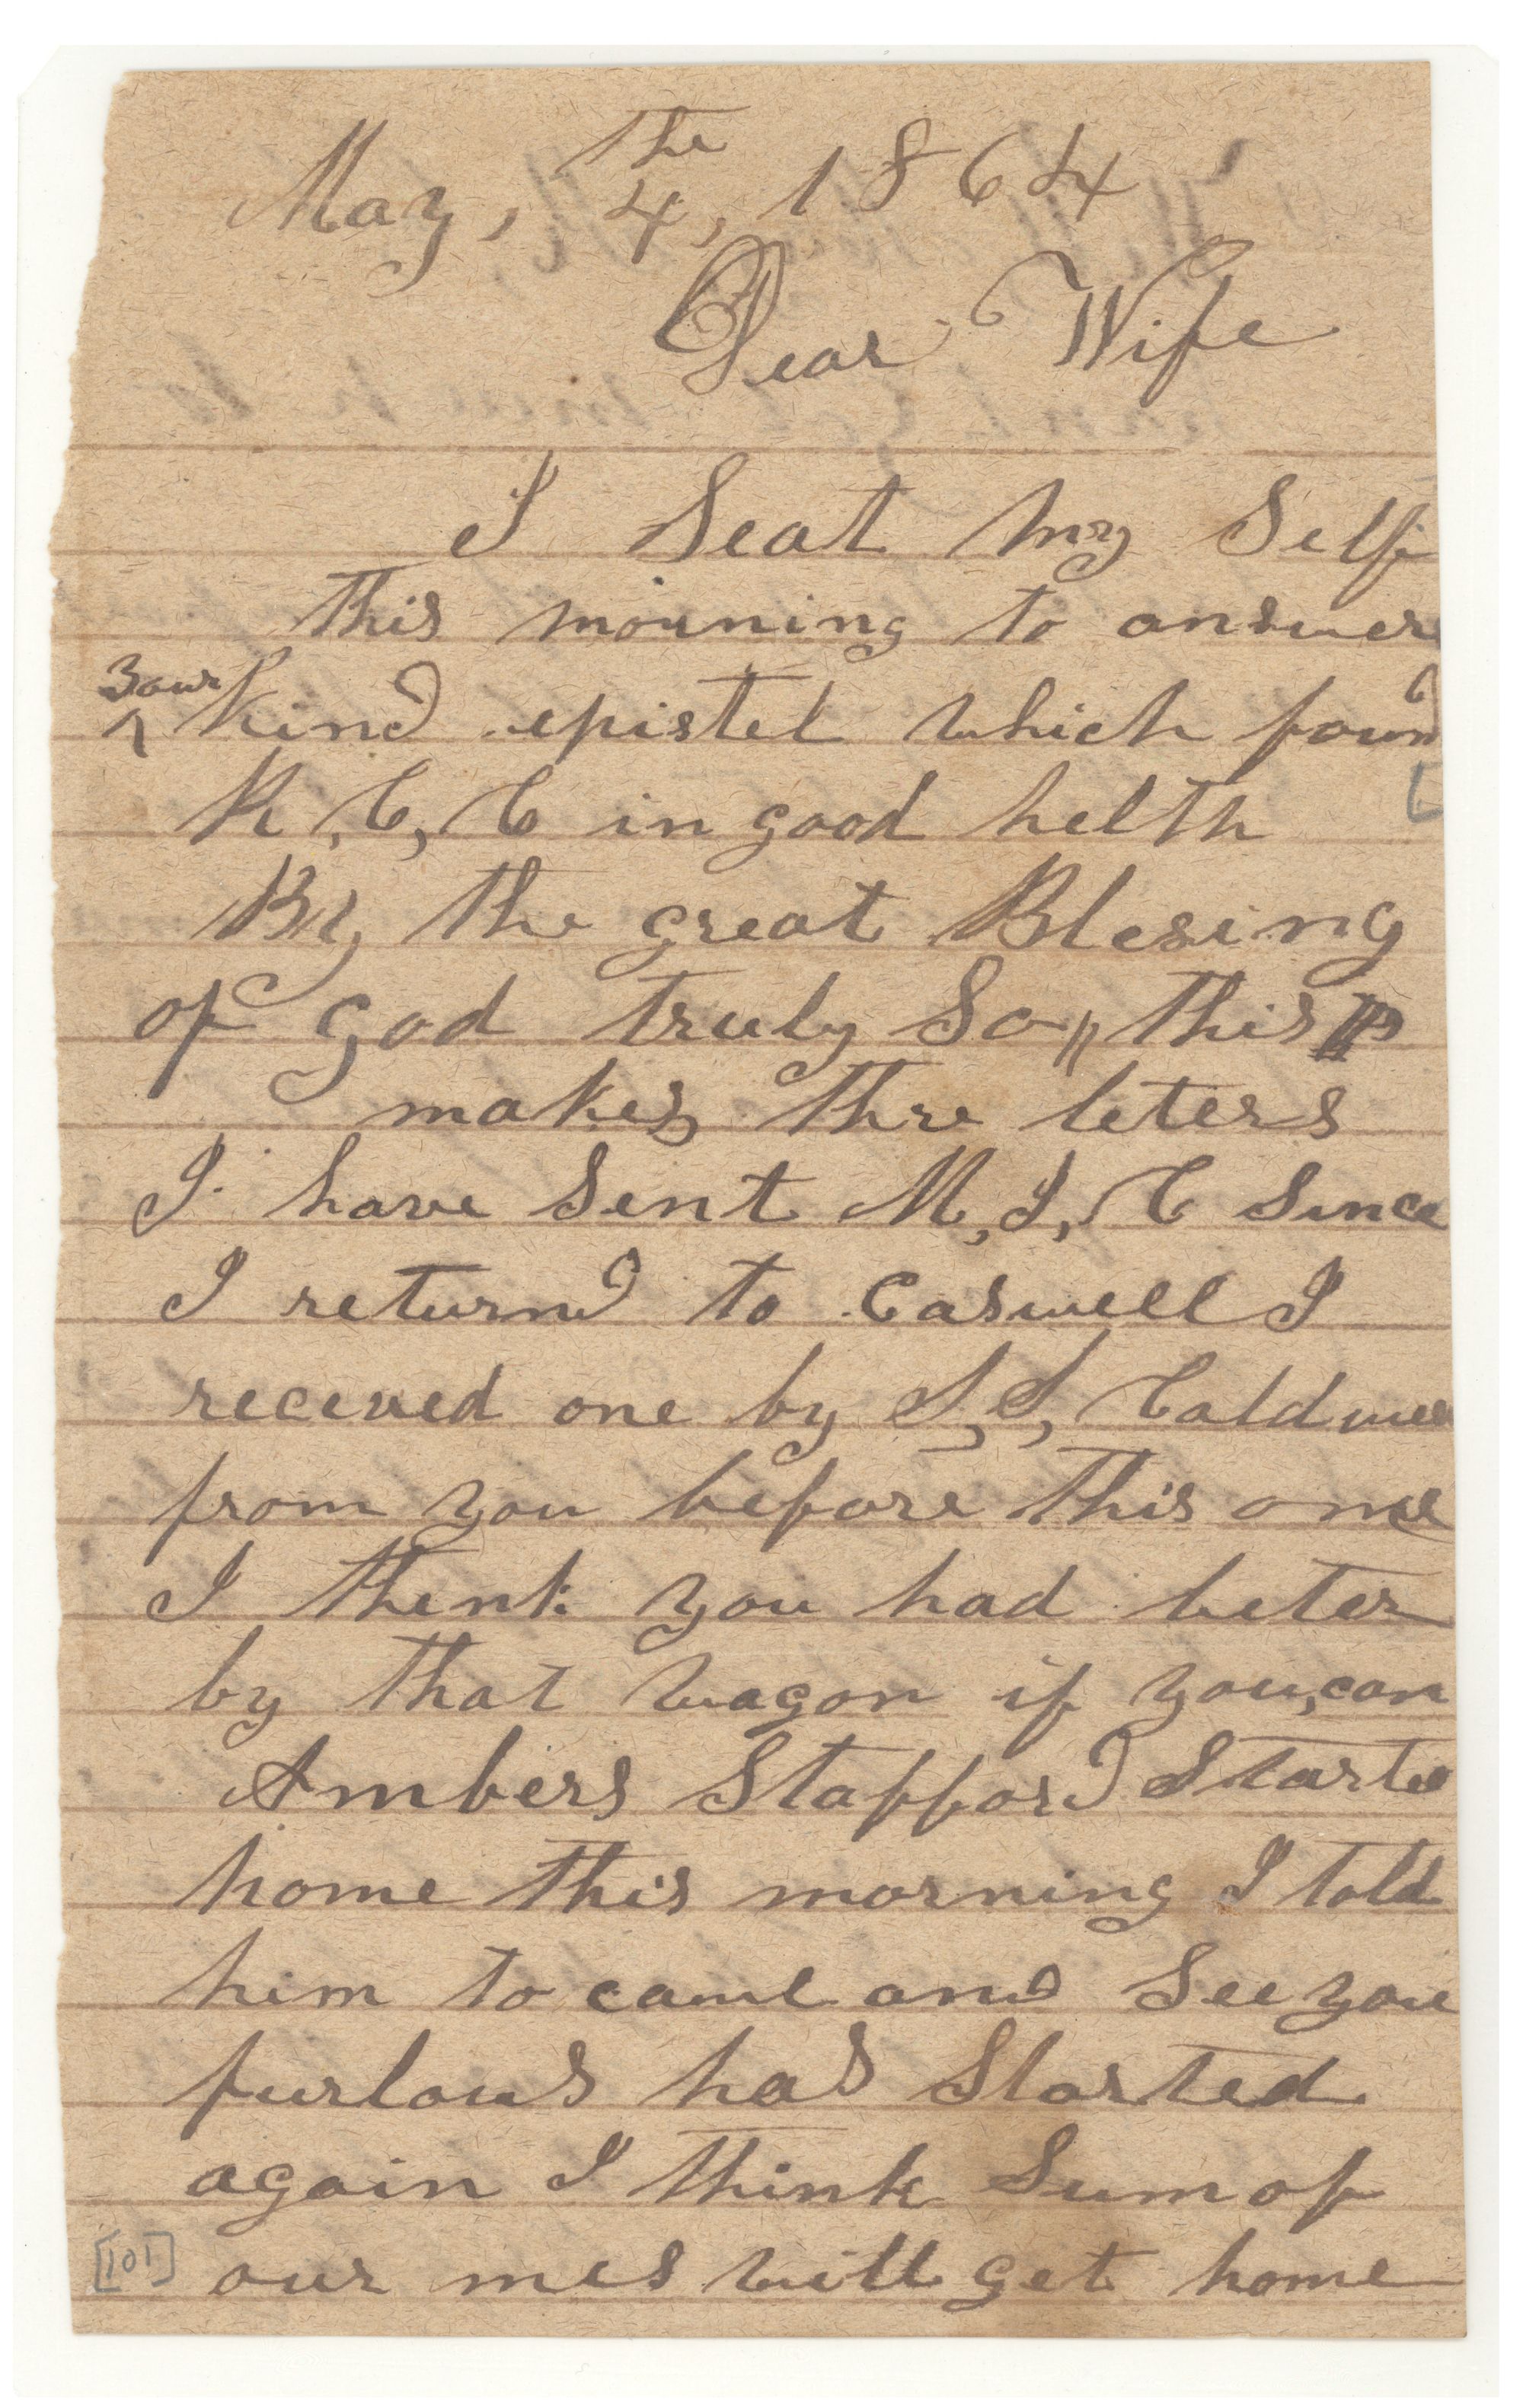 May, 4the, 1864
Dear Wife
I Seat my Self
this morning to answer
your kind epistel which found
K, C, C in good helth
By the great Blesing
of god truly So,, this
makes thre leters
I have Sent M, I, C Since
I returnd to Caswell I
received one by S, S, Caldwell
from you before this one
I think you had beter
by that wagon if you, can
Ambers Stafford Started
home this morning I told
him to came and See you
furlous has Started
again I think Sum of
our mes will get home
[101]